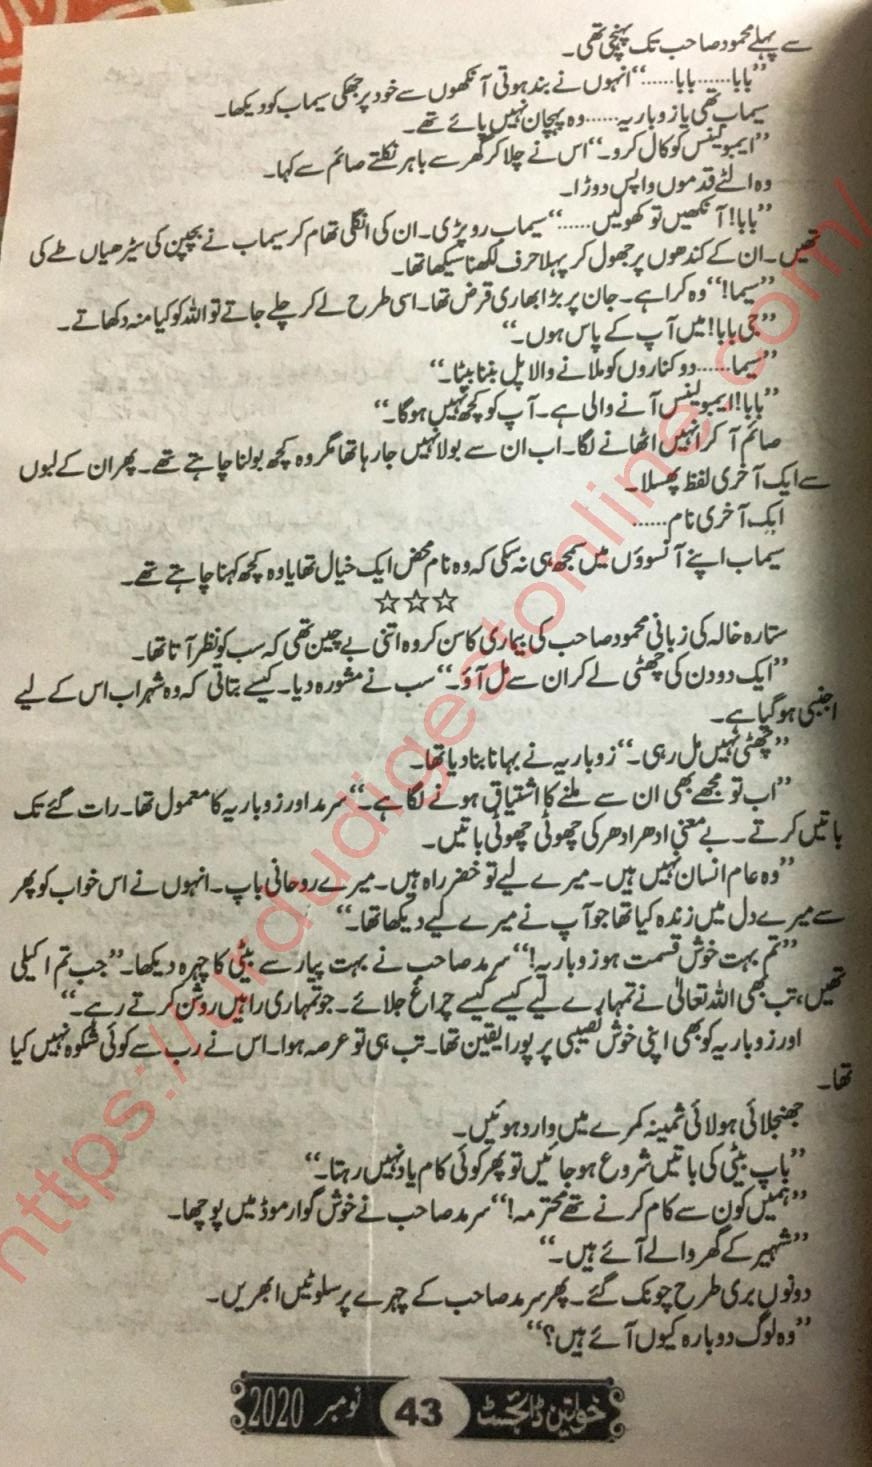 سے پہلے محمود صاحب تک پہنچی تھی۔
”بابا...... بابا.....“ انہوں نے بند ہوتی آنکھوں سے خود پر جھکی سیماب کو دیکھا۔
سیماب تھی یا زوباریہ...... وہ پہچان نہیں پائے تھے۔
”ایمبولینس کو کال کرو۔“ اس نے چلا کر گھر سے باہر نکلتے صائم سے کہا۔
وہ الٹے قدموں واپس دوڑا۔
”بابا! آنکھیں تو کھولیں......“ سیماب رو پڑی۔ ان کی انگلی تھام کر سیماب نے بچپن کی سیڑھیاں طے کی
تھیں۔ ان کے کندھوں پر جھول کر پہلا حرف لکھنا سیکھا تھا۔
”سیما!“ وہ کراہے۔ جان پر بڑا بھاری قرض تھا۔ اسی طرح لے کر چلے جاتے تو اللہ کو کیا منہ دکھاتے۔
”جی بابا! میں آپ کے پاس ہوں۔“
”سیما...... دو کناروں کو ملانے والا پل بننا بیٹا۔“
”بابا! ایمبولینس آنے والی ہے۔ آپ کو کچھ نہیں ہوگا۔“
صائم آ کر انہیں اٹھانے لگا۔ اب ان سے بولا نہیں جا رہا تھا مگر وہ کچھ بولنا چاہتے تھے۔ پھر ان کے لبوں
سے ایک آخری لفظ پھسلا۔
ایک آخری نام......
سیماب اپنے آنسوؤں میں سمجھ ہی نہ سکی کہ وہ نام محض ایک خیال تھا یا وہ کچھ کہنا چاہتے تھے۔
☆☆☆
ستارہ خالہ کی زبانی محمود صاحب کی بیماری کا سن کر وہ اتنی بے چین تھی کہ سب کو نظر آتا تھا۔
”ایک دو دن کی چھٹی لے کر ان سے مل آؤ۔“ سب نے مشورہ دیا۔ کیسے بتاتی کہ وہ شہر اب اس کے لیے
اجنبی ہو گیا ہے۔
”چھٹی نہیں مل رہی۔“ زوباریہ نے بہانا بنا دیا تھا۔
”اب تو مجھے بھی ان سے ملنے کا اشتیاق ہونے لگا ہے۔“ سرمد اور زوباریہ کا معمول تھا۔ رات گئے تک
باتیں کرتے۔ بے معنی ادھر ادھر کی چھوٹی چھوٹی باتیں۔
”وہ عام انسان نہیں ہیں۔ میرے لیے تو خضر راہ ہیں۔ میرے روحانی باپ۔ انہوں نے اس خواب کو پھر
سے میرے دل میں زندہ کیا تھا جو آپ نے میرے لیے دیکھا تھا۔“
”تم بہت خوش قسمت ہو زوباریہ!“ سرمد صاحب نے بہت پیار سے بیٹی کا چہرہ دیکھا۔ ”جب تم اکیلی
تھیں، تب بھی اللہ تعالیٰ نے تمہارے لیے کیسے کیسے چراغ جلائے۔ جو تمہاری راہیں روشن کرتے رہے۔“
اور زوباریہ کو بھی اپنی خوش نصیبی پر پورا یقین تھا۔ تب ہی تو عرصہ ہوا۔ اس نے رب سے کوئی شکوہ نہیں کیا
تھا۔
جھنجلائی ہولائی ثمینہ کمرے میں وارد ہوئیں۔
”باپ بیٹی کی باتیں شروع ہو جائیں تو پھر کوئی کام یاد نہیں رہتا۔“
”ہمیں کون سے کام کرنے تھے محترمہ!“ سرمد صاحب نے خوش گوار موڈ میں پوچھا۔
”شہیر کے گھر والے آئے ہیں۔“
دونوں بری طرح چونک گئے۔ پھر سرمد صاحب کے چہرے پر سلوٹیں ابھریں۔
”وہ لوگ دوبارہ کیوں آئے ہیں؟“
خواتین ڈائجسٹ 43 نومبر 2020
https://urdudigestonline.com/